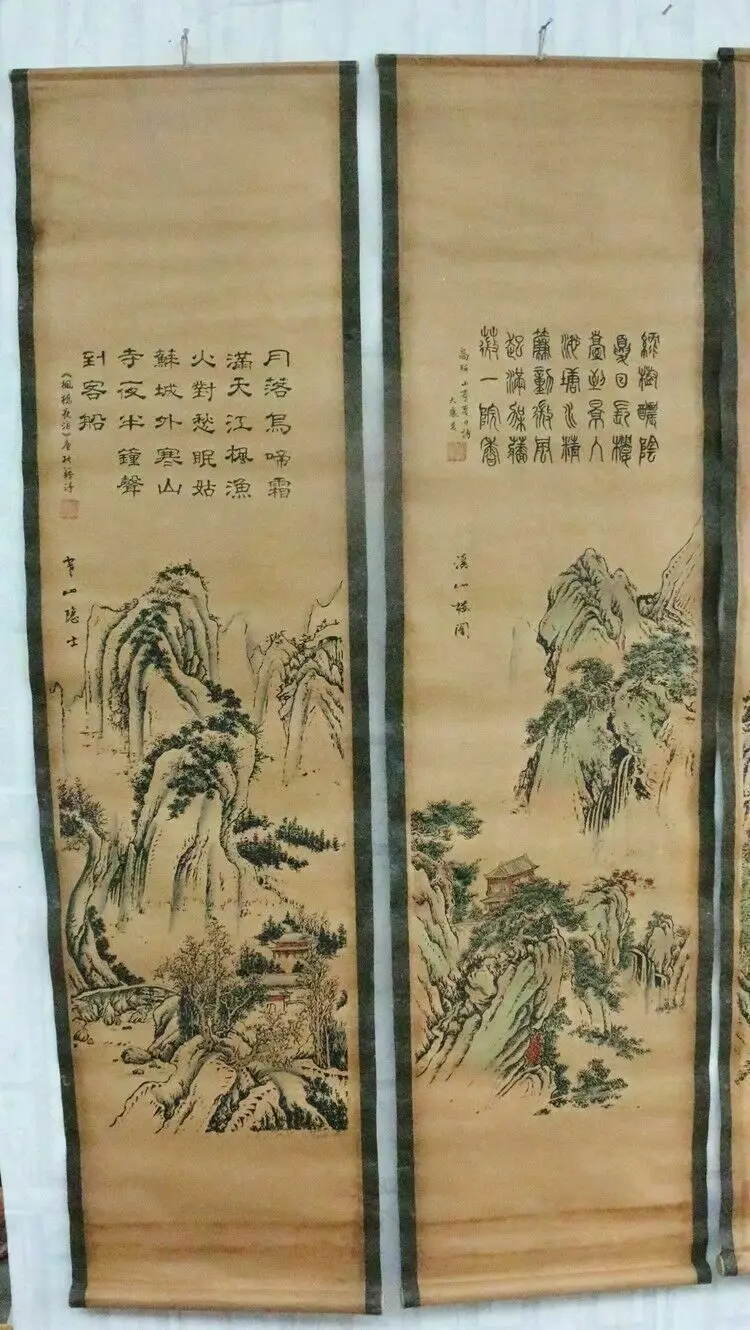 綠樹醲陰
夏日長樓
臺到景入
池塘水精
簾動微風
起滿架薔
薇一院香
高駢山亭夏日詩
溪山樓閣
月落烏啼霜
滿天江楓漁
火對愁眠姑
蘇城外寒山
寺夜半鐘聲
到客船
《楓橋夜泊》唐張繼詩
寒山隱士